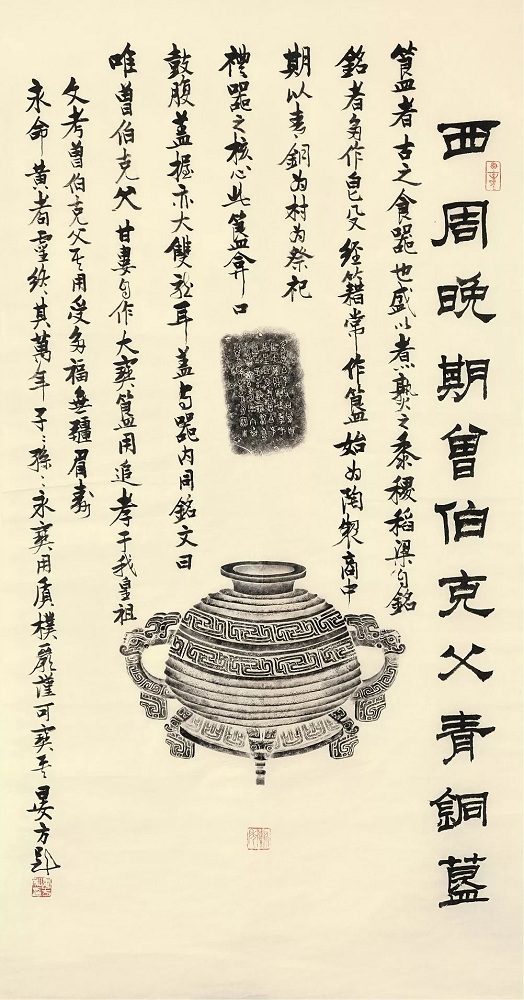 西周晚期曾伯克父青銅簋
簋者古之食器也盛以煮熟之黍稷稻粱自銘
銘者多作皀殳經籍常作簋始为陶製商中
期以青銅为材为祭祀
禮器之核心此簋弇口
鼓腹蓋握亦大雙龍耳蓋与器内用銘文曰
唯曾伯克父甘婁自作大寶簋用追孝于我皇祖
文考曾伯克父其用受多福無疆眉壽
永命黃耇霝終其萬年子〻孫〻永寶用質樸嚴謹可寶其
晏方題